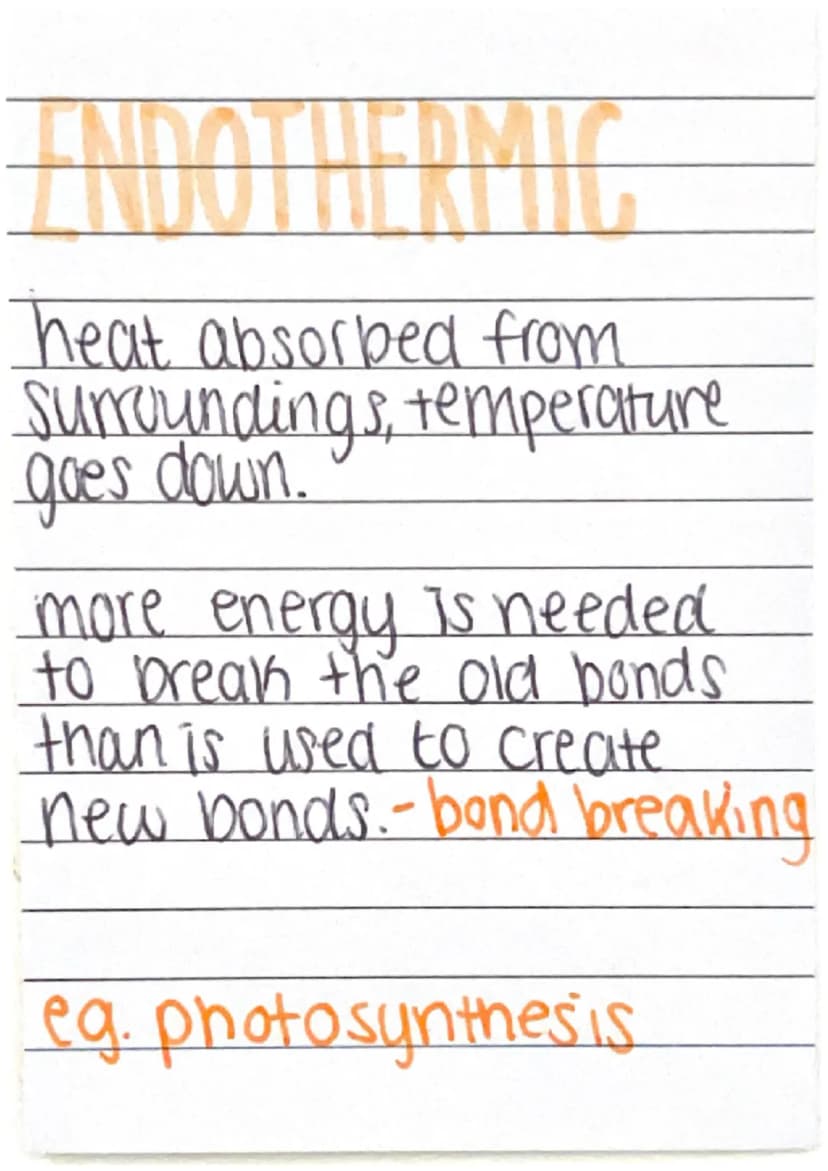 ENDOTHERMIC
heat absorbed from
surroundings, temperature
goes down.
more energy is needed
to break the old bonds
than is used to create
new bonds. - bond breaking
eg. photosynthesis